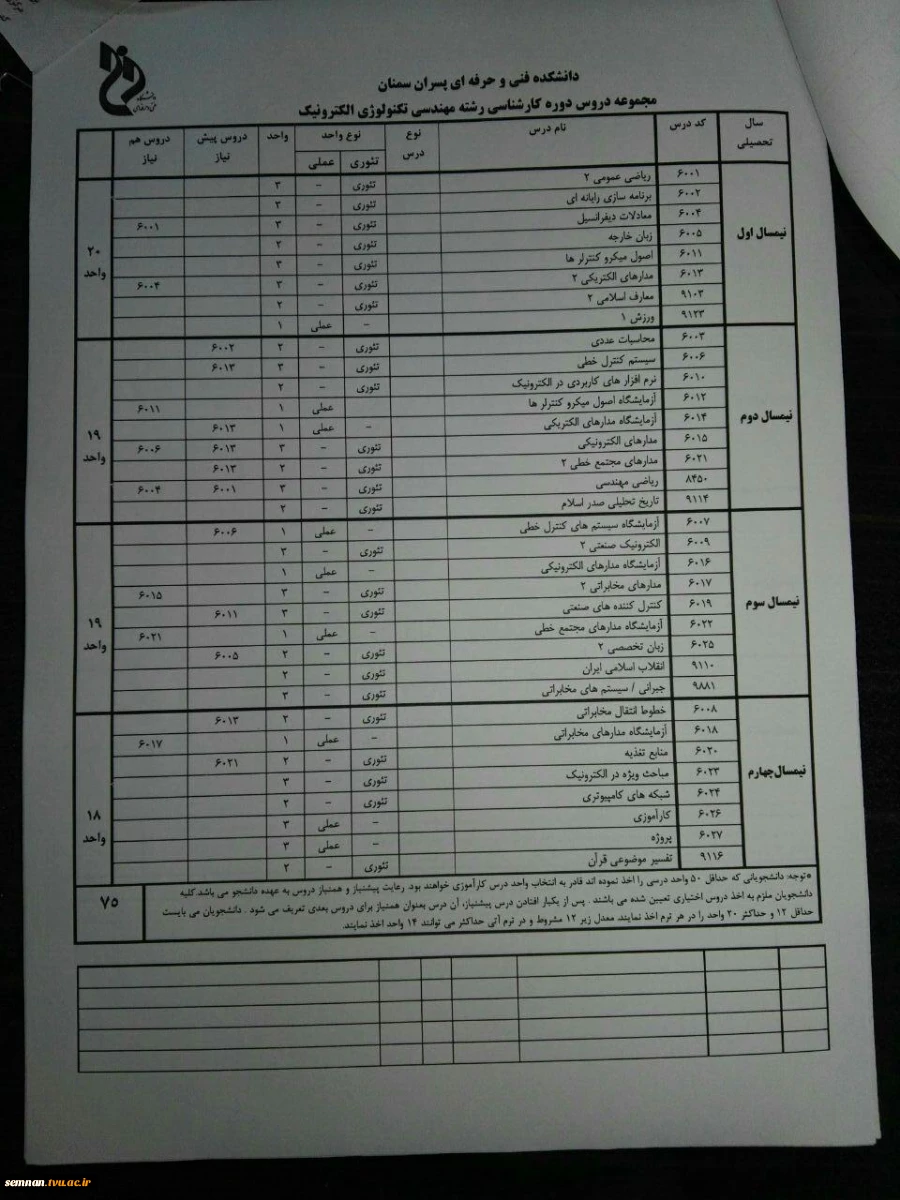 دانشگاه
فنی و حرفه ای
دانشکده فنی و حرفه ای پسران سمنان
مجموعه دروس دوره کارشناسی رشته مهندسی تکنولوژی الکترونیک
سال تحصیلی کد درس نام درس نوع درس نوع واحد تئوری عملی واحد دروس پیش نیاز دروس هم نیاز
نیمسال اول
۶۰۰۱ ریاضی عمومی ۲ تئوری - ۳
۶۰۰۲ برنامه سازی رایانه ای تئوری - ۳
۶۰۰۴ معادلات دیفرانسیل تئوری - ۳ ۶۰۰۱
۶۰۰۵ زبان خارجه تئوری - ۲
۶۰۱۱ اصول میکرو کنترلر ها تئوری - ۳
۶۰۱۳ مدارهای الکتریکی ۲ تئوری - ۳ ۶۰۰۴
۹۱۰۳ معارف اسلامی ۲ تئوری - ۲
۹۱۲۳ ورزش ۱ - عملی ۱
۲۰ واحد
نیمسال دوم
۶۰۰۳ محاسبات عددی تئوری - ۲ ۶۰۰۲
۶۰۰۶ سیستم کنترل خطی تئوری - ۳ ۶۰۱۳
۶۰۱۰ نرم افزار های کاربردی در الکترونیک تئوری - ۲
۶۰۱۲ آزمایشگاه اصول میکرو کنترلر ها عملی ۱ ۶۰۱۱
۶۰۱۴ آزمایشگاه مدارهای الکتریکی - عملی ۱ ۶۰۱۳
۶۰۱۵ مدارهای الکترونیکی تئوری - ۳ ۶۰۱۳ ۶۰۰۶
۶۰۲۱ مدارهای مجتمع خطی ۲ تئوری - ۲ ۶۰۱۳
۸۴۵۰ ریاضی مهندسی تئوری - ۳ ۶۰۰۱ ۶۰۰۴
۹۱۱۴ تاریخ تحلیلی صدر اسلام تئوری - ۲
۱۹ واحد
نیمسال سوم
۶۰۰۷ آزمایشگاه سیستم های کنترل خطی - عملی ۱ ۶۰۰۶
۶۰۰۹ الکترونیک صنعتی ۲ تئوری - ۳
۶۰۱۶ آزمایشگاه مدارهای الکترونیکی - عملی ۱
۶۰۱۷ مدارهای مخابراتی ۲ تئوری - ۳ ۶۰۱۵
۶۰۱۹ کنترل کننده های صنعتی تئوری - ۳ ۶۰۱۱
۶۰۲۲ آزمایشگاه مدارهای مجتمع خطی - عملی ۱ ۶۰۲۱
۶۰۲۵ زبان تخصصی ۲ تئوری - ۲ ۶۰۰۵
۹۱۱۰ انقلاب اسلامی ایران تئوری - ۲
۹۸۸۱ جبرانی / سیستم های مخابراتی تئوری - ۳
۱۹ واحد
نیمسال چهارم
۶۰۰۸ خطوط انتقال مخابراتی تئوری - ۲ ۶۰۱۳
۶۰۱۸ آزمایشگاه مدارهای مخابراتی - عملی ۱ ۶۰۱۷
۶۰۲۰ منابع تغذیه تئوری - ۲ ۶۰۲۱
۶۰۲۳ مباحث ویژه در الکترونیک تئوری - ۳
۶۰۲۴ شبکه های کامپیوتری تئوری - ۲
۶۰۲۶ کارآموزی - عملی ۳
۶۰۲۷ پروژه - عملی ۳
۹۱۱۶ تفسیر موضوعی قرآن تئوری - ۲
۱۸ واحد
*توجه: دانشجویانی که حداقل ۵۰ واحد درسی را اخذ نموده اند قادر به انتخاب واحد درس کارآموزی خواهند بود. رعایت پیشنیاز و همنیاز دروس به عهده دانشجو می باشد. کلیه
دانشجویان ملزم به اخذ دروس اختیاری تعیین شده می باشند . پس از یکبار افتادن درس پیشنیاز، آن درس بعنوان همنیاز برای دروس بعدی تعریف می شود . دانشجویان می بایست
حداقل ۱۲ و حداکثر ۲۰ واحد را در هر ترم اخذ نمایند. معدل زیر ۱۲ مشروط و در ترم آتی حداکثر می توانند ۱۴ واحد اخذ نمایند.
۷۵
semnan.tvu.ac.ir